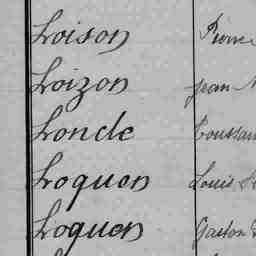 Loison Pierre
Loizon Jean
Loncle Toussain
Loquen Louis
Loquen Gaston